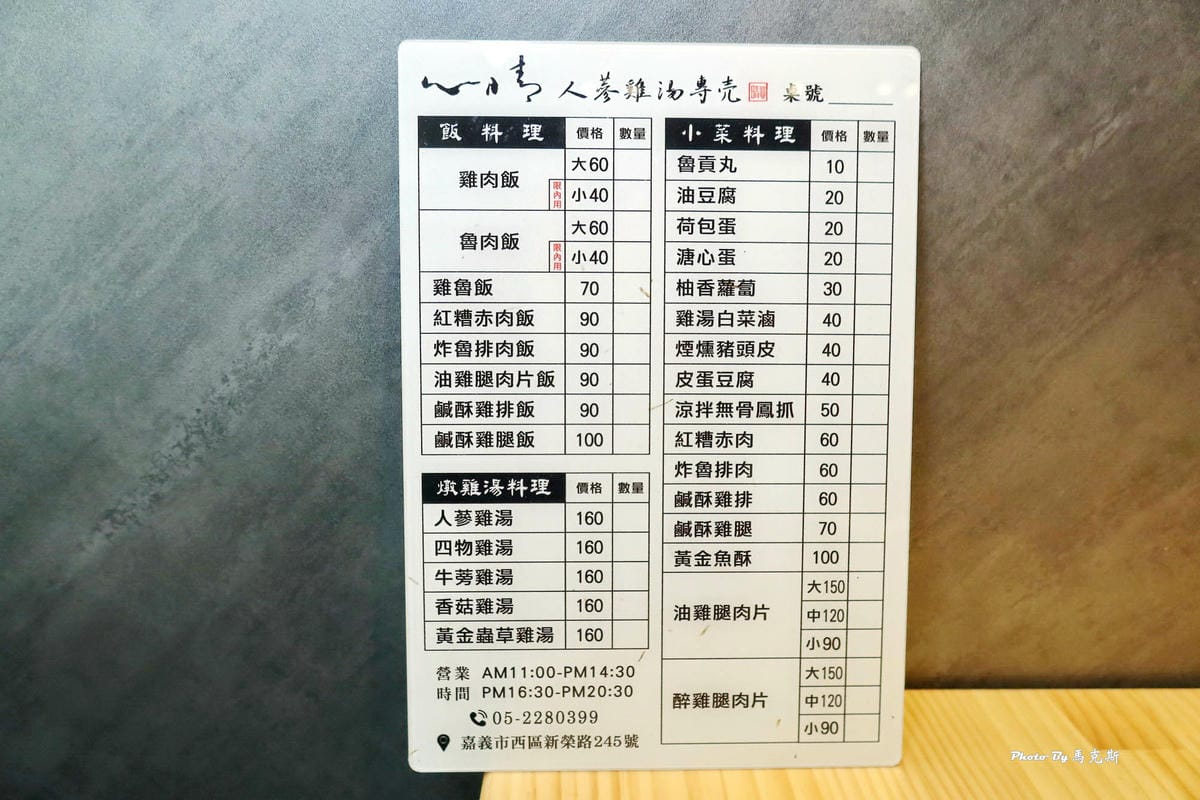 心晴 人蔘雞湯專売 桌號
飯料理 價格 數量
雞肉飯 大60
限內用 小40
魯肉飯 大60
限內用 小40
雞魯飯 70
紅糟赤肉飯 90
炸魯排肉飯 90
油雞腿肉片飯 90
鹹酥雞排飯 90
鹹酥雞腿飯 100
燉雞湯料理 價格 數量
人蔘雞湯 160
四物雞湯 160
牛蒡雞湯 160
香菇雞湯 160
黃金蟲草雞湯 160
營業 AM11:00-PM14:30
時間 PM16:30-PM20:30
05-2280399
嘉義市西區新榮路245號
小菜料理 價格 數量
魯貢丸 10
油豆腐 20
荷包蛋 20
溏心蛋 20
柚香蘿蔔 30
雞湯白菜滷 40
煙燻豬頭皮 40
皮蛋豆腐 40
涼拌無骨鳳抓 50
紅糟赤肉 60
炸魯排肉 60
鹹酥雞排 60
鹹酥雞腿 70
黃金魚酥 100
油雞腿肉片 大150
中120
小90
醉雞腿肉片 大150
中120
小90
Photo By 馬克斯